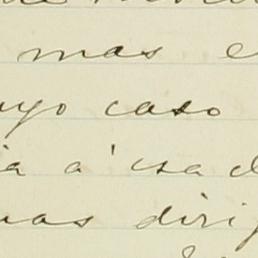 mas e
uyo caso
ia a' esa d
uas dirig